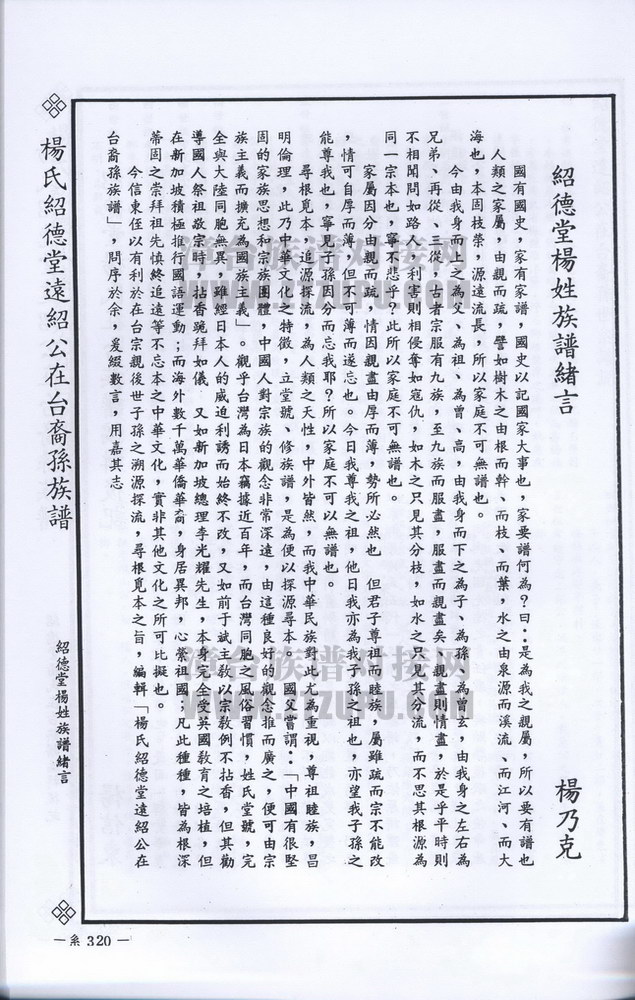 紹德堂楊姓族譜緒言
楊乃克
國有國史，家有家譜，國史以記國家大事也，家要譜何為？曰：是為我之親屬，所以要有譜也
人類之家屬，由親而疏，譬如樹木之由根而幹、而枝、而葉，水之由泉源而溪流、而江河、而大
海也，本固枝榮，源遠流長，所以家庭不可無譜也。
今由我身而上之為父、為祖、為曾、高，由我身而下之為子、為孫、為曾玄，由我身之左右為
兄弟、再從、三從，古者宗服有九族，至九族而服盡，服盡而親盡矣，親盡則情盡，於是乎平時則
不相聞問如路人，利害則相侵奪如寇仇，如木之只見其分枝，如水之只見其分流，而不思其根源為
同一宗本也，寧不悲乎？此所以家庭不可無譜也。
家屬因分由親而疏，情因親盡由厚而薄，勢所必然也　但君子尊祖而睦族，屬雖疏而宗不能改
，情可自厚而薄，但不可薄而遂忘也。今日我尊我之祖，他日我亦為我子孫之祖也，亦望我子孫之
能尊我也，寧見子孫因分而忘我耶？所以家庭不可以無譜也。
尋根覓本，追源探流，為人類之天性，中外皆然，而我中華民族對此尤為重視，尊祖睦族，昌
明倫理，此乃中華文化之特徵，立堂號、修族譜，是為便以探源尋本。　國父嘗謂：「中國有很堅
固的家族思想和宗族團體，中國人對宗族的觀念非常深遠，由這種良好的觀念推而廣之，便可由宗
族主義而擴充為國族主義」。觀乎台灣為日本竊據近百年，而台灣同胞之風俗習慣，姓氏堂號，完
全與大陸同胞無異，雖經日本人的威迫利誘而始終不改，又如前于斌主教以宗教例不拈香，但其勸
導國人祭祖敬宗時，拈香跪拜如儀　又如新加坡總理李光耀先生，本身完全受英國教育之培植，但
在新加坡積極推行國語運動；而海外數千萬華僑華裔，身居異邦，心縈祖國；凡此種種，皆為根深
蒂固之崇拜祖先慎終追遠等不忘本之中華文化，實非其他文化之所可比擬也。
今信東侄以有利於在台宗親後世子孫之溯源探流，尋根覓本之旨，編輯「楊氏紹德堂遠紹公在
台裔孫族譜」，問序於余，爰綴數言，用嘉其志
楊氏紹德堂遠紹公在台裔孫族譜
紹德堂楊姓族譜緒言
—系 320—